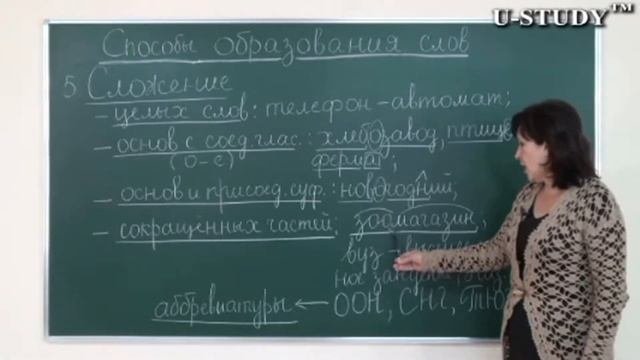 U-STUDY™
Способы образования слов
5 Сложение
– целых слов: телефон-автомат;
– основ с соед. глас.: хлебозавод, птице
(о-е) ферма;
– основ и присоед. суф.: новогодний;
– сокращённых частей: зоомагазин;
вуз –
ное
аббревиатуры ← ООН, СНГ, ТЮ